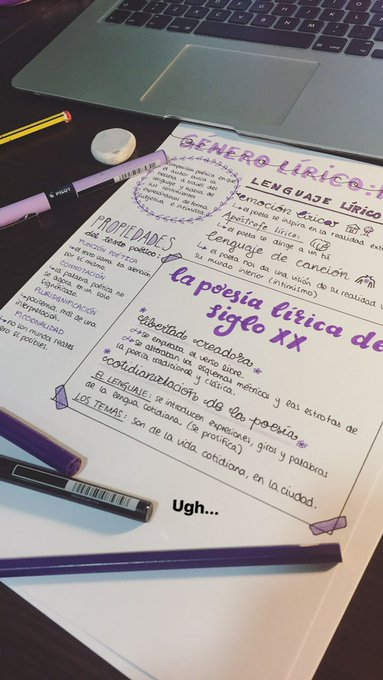 GÉNERO LÍRICO:
composición poética en que
el autor busca la
a través del
lenguaje y hacia de
sus sentimientos
expresiones de forma
subjetiva e intimista.
LENGUAJE LÍRICO
emoción lírica:
↳ el poeta se inspira en la realidad
Apóstrofe lírico:
↳ el poeta se dirige a un tú
lenguaje de canción
↳ el poeta nos da una visión de su realidad
su mundo interior (intimismo)
PROPIEDADES
del texto poético:
FUNCIÓN POÉTICA
↳ el texto llama la atención
por sí mismo.
CONNOTACIÓN
↳ la palabra poética no
se agota en un solo
significado.
PLURISIGNIFICACIÓN
↳ polisemia, más de una
interpretación.
FICCIONALIDAD
↳ no son mundos reales
pero sí posibles.
la poesía lírica del
siglo XX
libertad creadora
↳ se emplea el verso libre.
↳ se abandonan los esquemas métricos y las estrofas de
la poesía tradicional y clásica.
cotidianización de la poesía
EL LENGUAJE: se introducen expresiones, giros y palabras
de la lengua cotidiana. (se prosifica)
LOS TEMAS: son de la vida cotidiana, en la ciudad.
PILOT
Ugh...